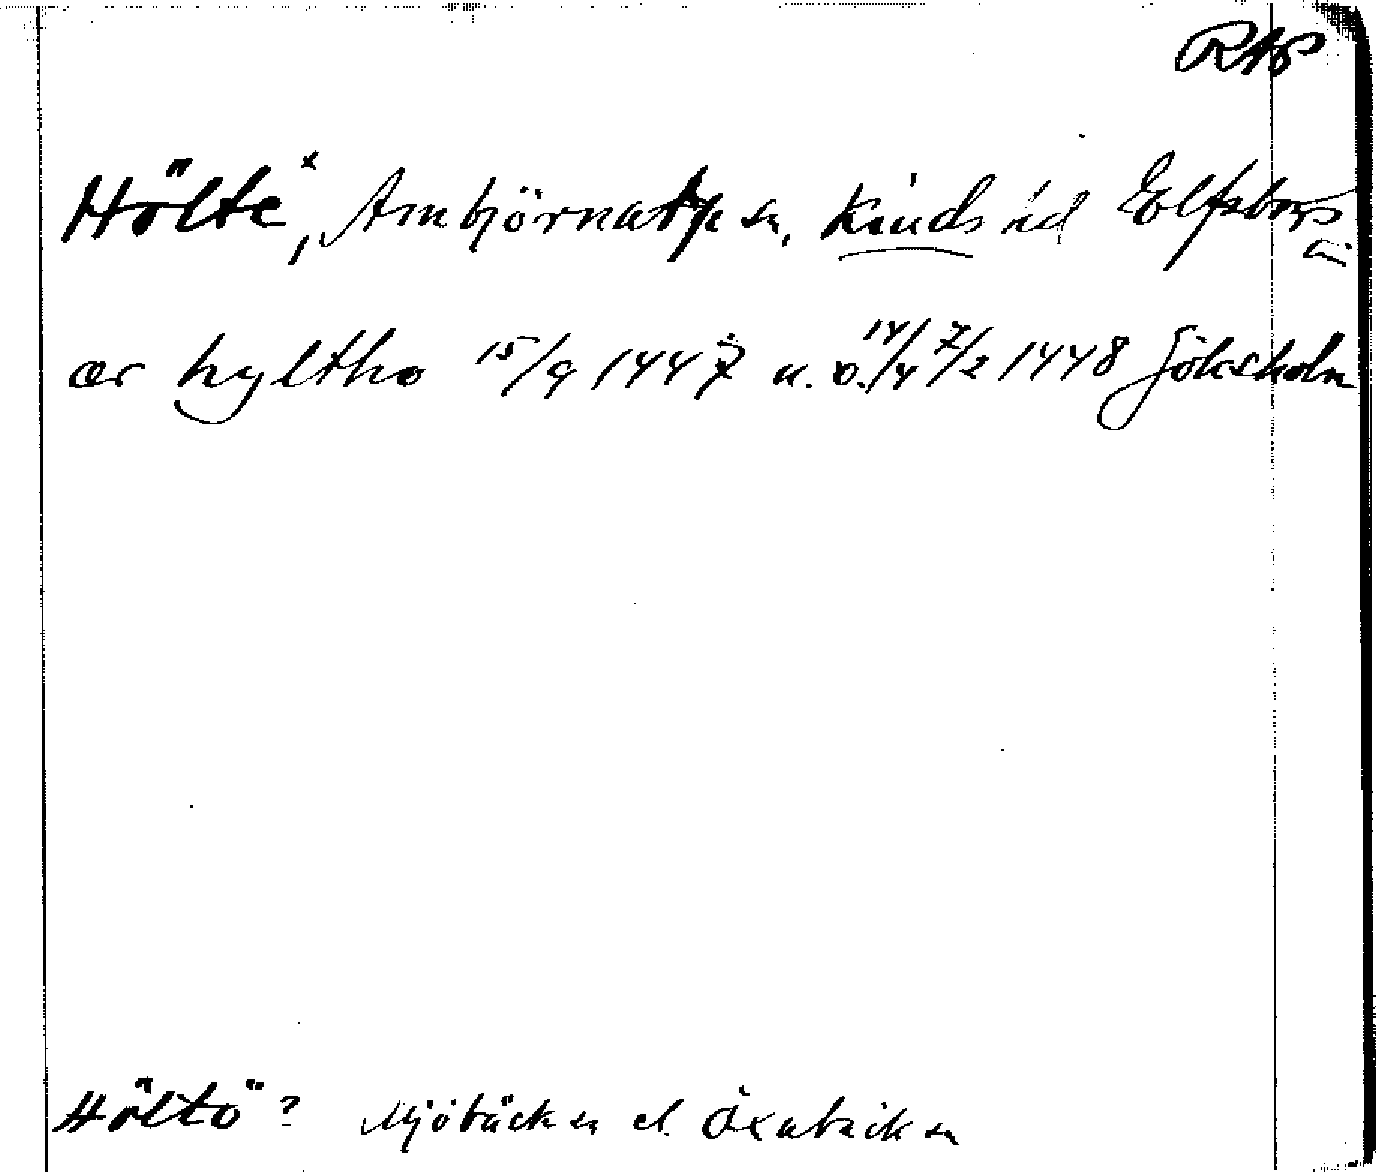 RAP
Hölte x, Ambjörnarp sn, Kinds hd Elfsborgs
län
ær hyltho 15/9 1447 u. o. 14/4 7/2 1448 Göksholm
Höltö? Mjöbäck sn el. Öxabäck sn